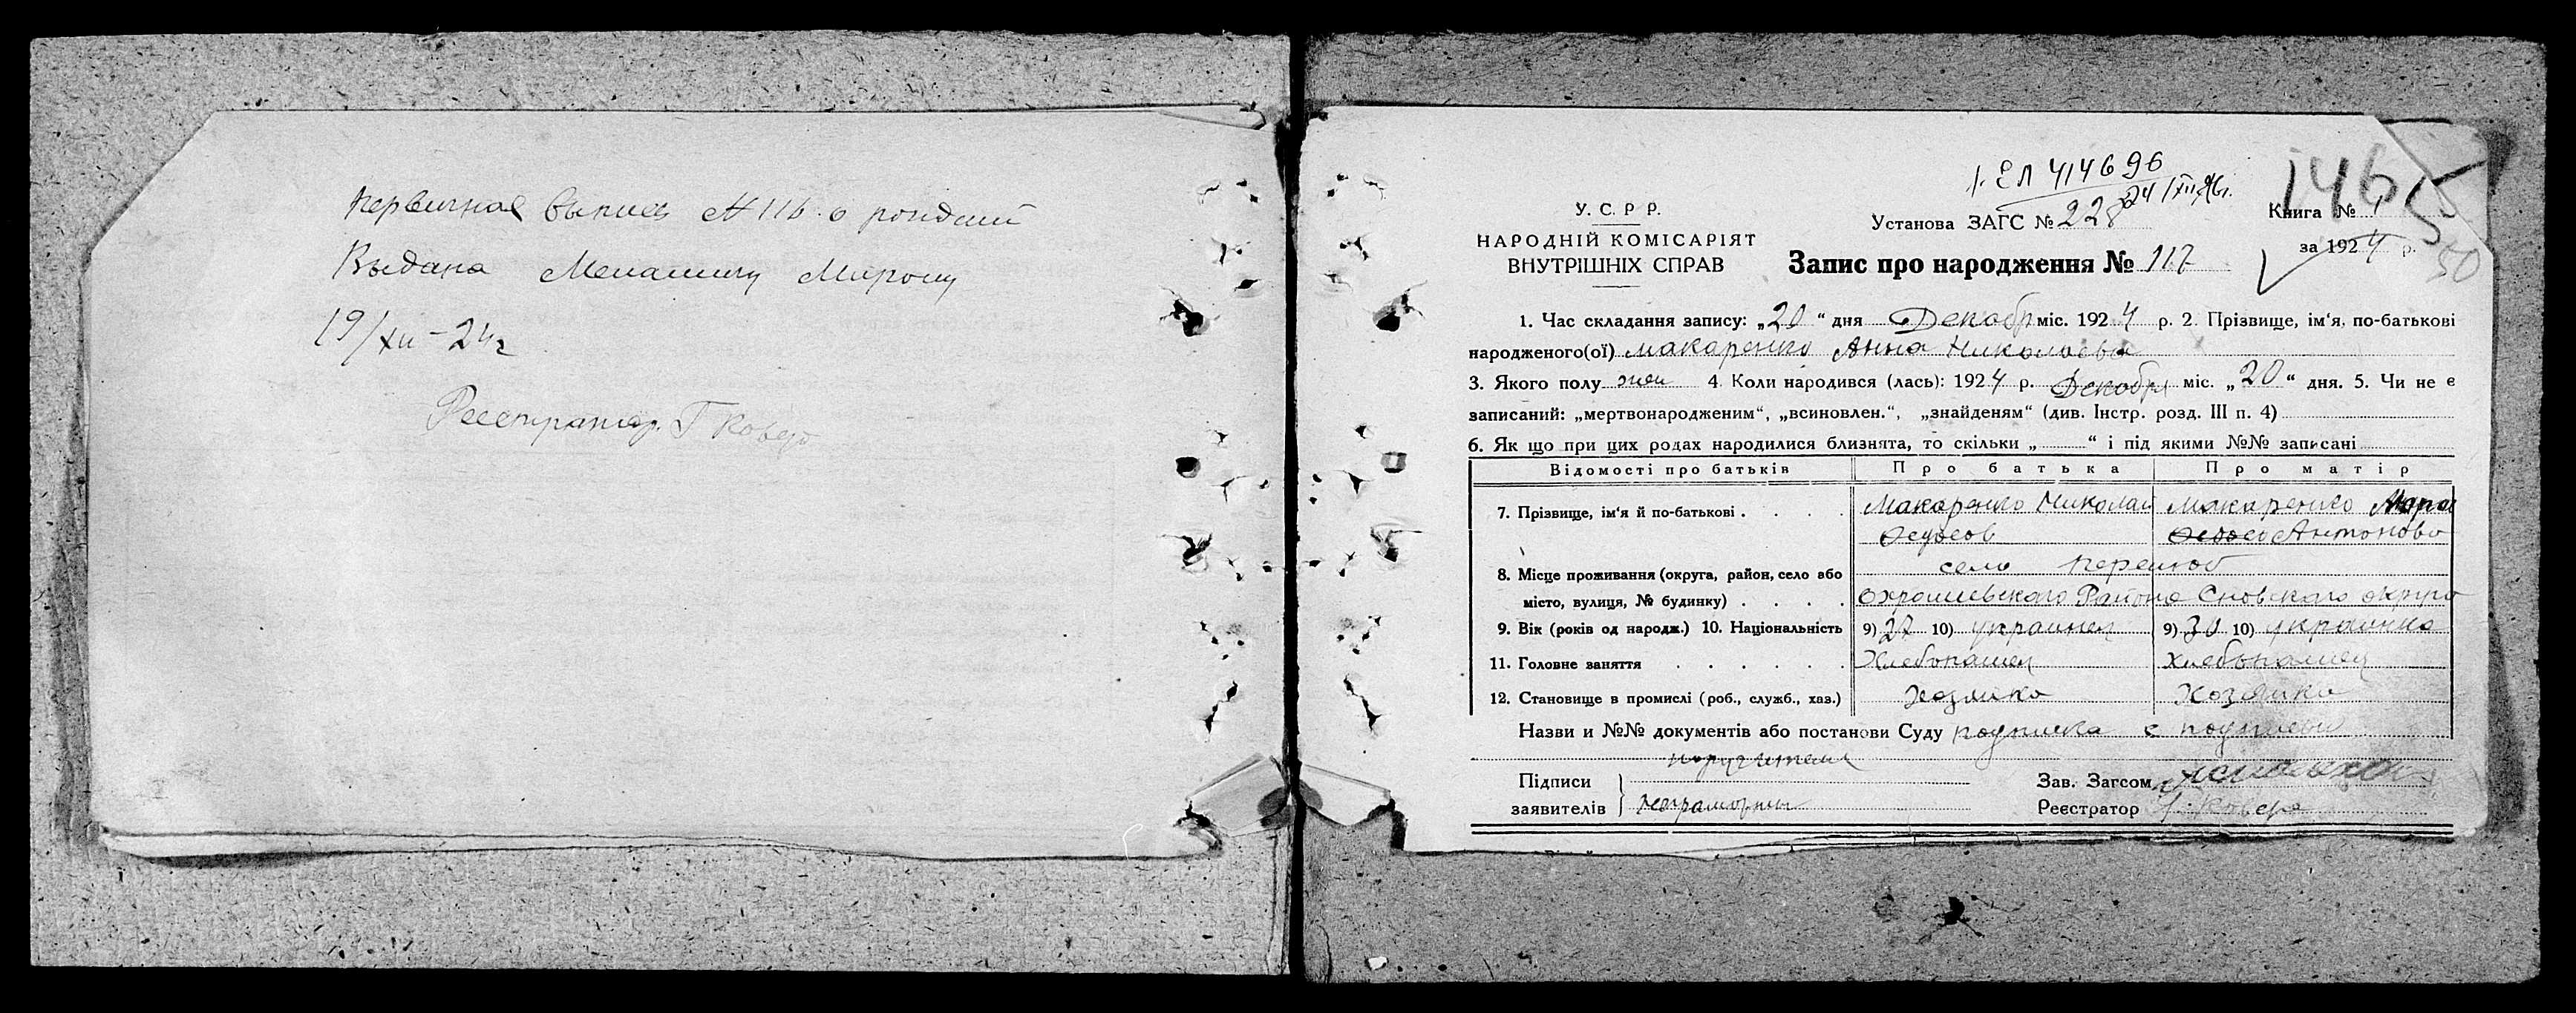 Первичная выпись № 116 о рождении
Выдана Менашиму Мирону
19/XII-24г
Регистратор Г Ковер
1. ЕЛ 414696
24/XII
146
У. С. Р. Р.
НАРОДНІЙ КОМІСАРІЯТ
ВНУТРІШНІХ СПРАВ
Установа ЗАГС № 228
Запис про народження № 117
Книга № 1
за 1924 р.
50
1. Час складання запису: „20“ дня Декабр міс. 1924 р. 2. Прізвище, ім‘я, по-батькові
народженого(ої) Макаренко Анна Николаева
3. Якого полу жен 4. Коли народився (лась): 1924 р. Декабря міс. „20“ дня. 5. Чи не є
записаний: „мертвонародженим“, „всиновлен.“, „знайденям“ (див. Інстр. розд. III п. 4)
6. Як що при цих родах народилися близнята, то скільки „ “ і під якими №№ записані
Відомості про батьків Про батька Про матір
7. Прізвище, ім‘я й по-батькові . . . . Макаренко Николай Макаренко Мария
Федосов Антонова
8. Місце проживання (округа, район, село або село Перелюб
місто, вулиця, № будинку) . . . . Охрамиевского Района Сновского округа
9. Вік (років од народж.) 10. Національність 9) 27 10) украинец 9) 30 10) украинка
11. Головне заняття . . . . . . Хлебопашец Хлебопашец
12. Становище в промислі (роб., служб., хаз.) Хозяика Хозяика
Назви и №№ документів або постанови Суду подписка с подписью
поручителя
Підписи
заявителів неграмотны
Зав. Загсом
Реєстратор Г. Ковер